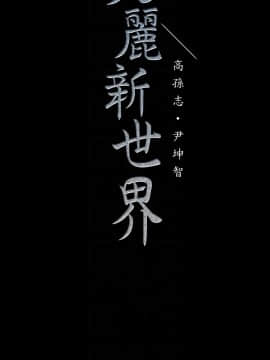 麗新世界
高孫志・尹坤智